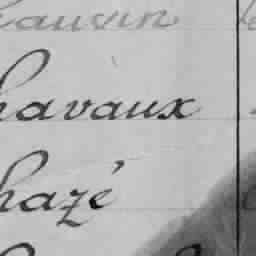 hauvin
havaux
hazé